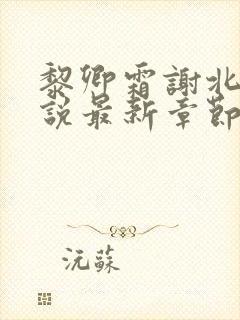 黎卿霜謝北
說最新章節
沅蘇